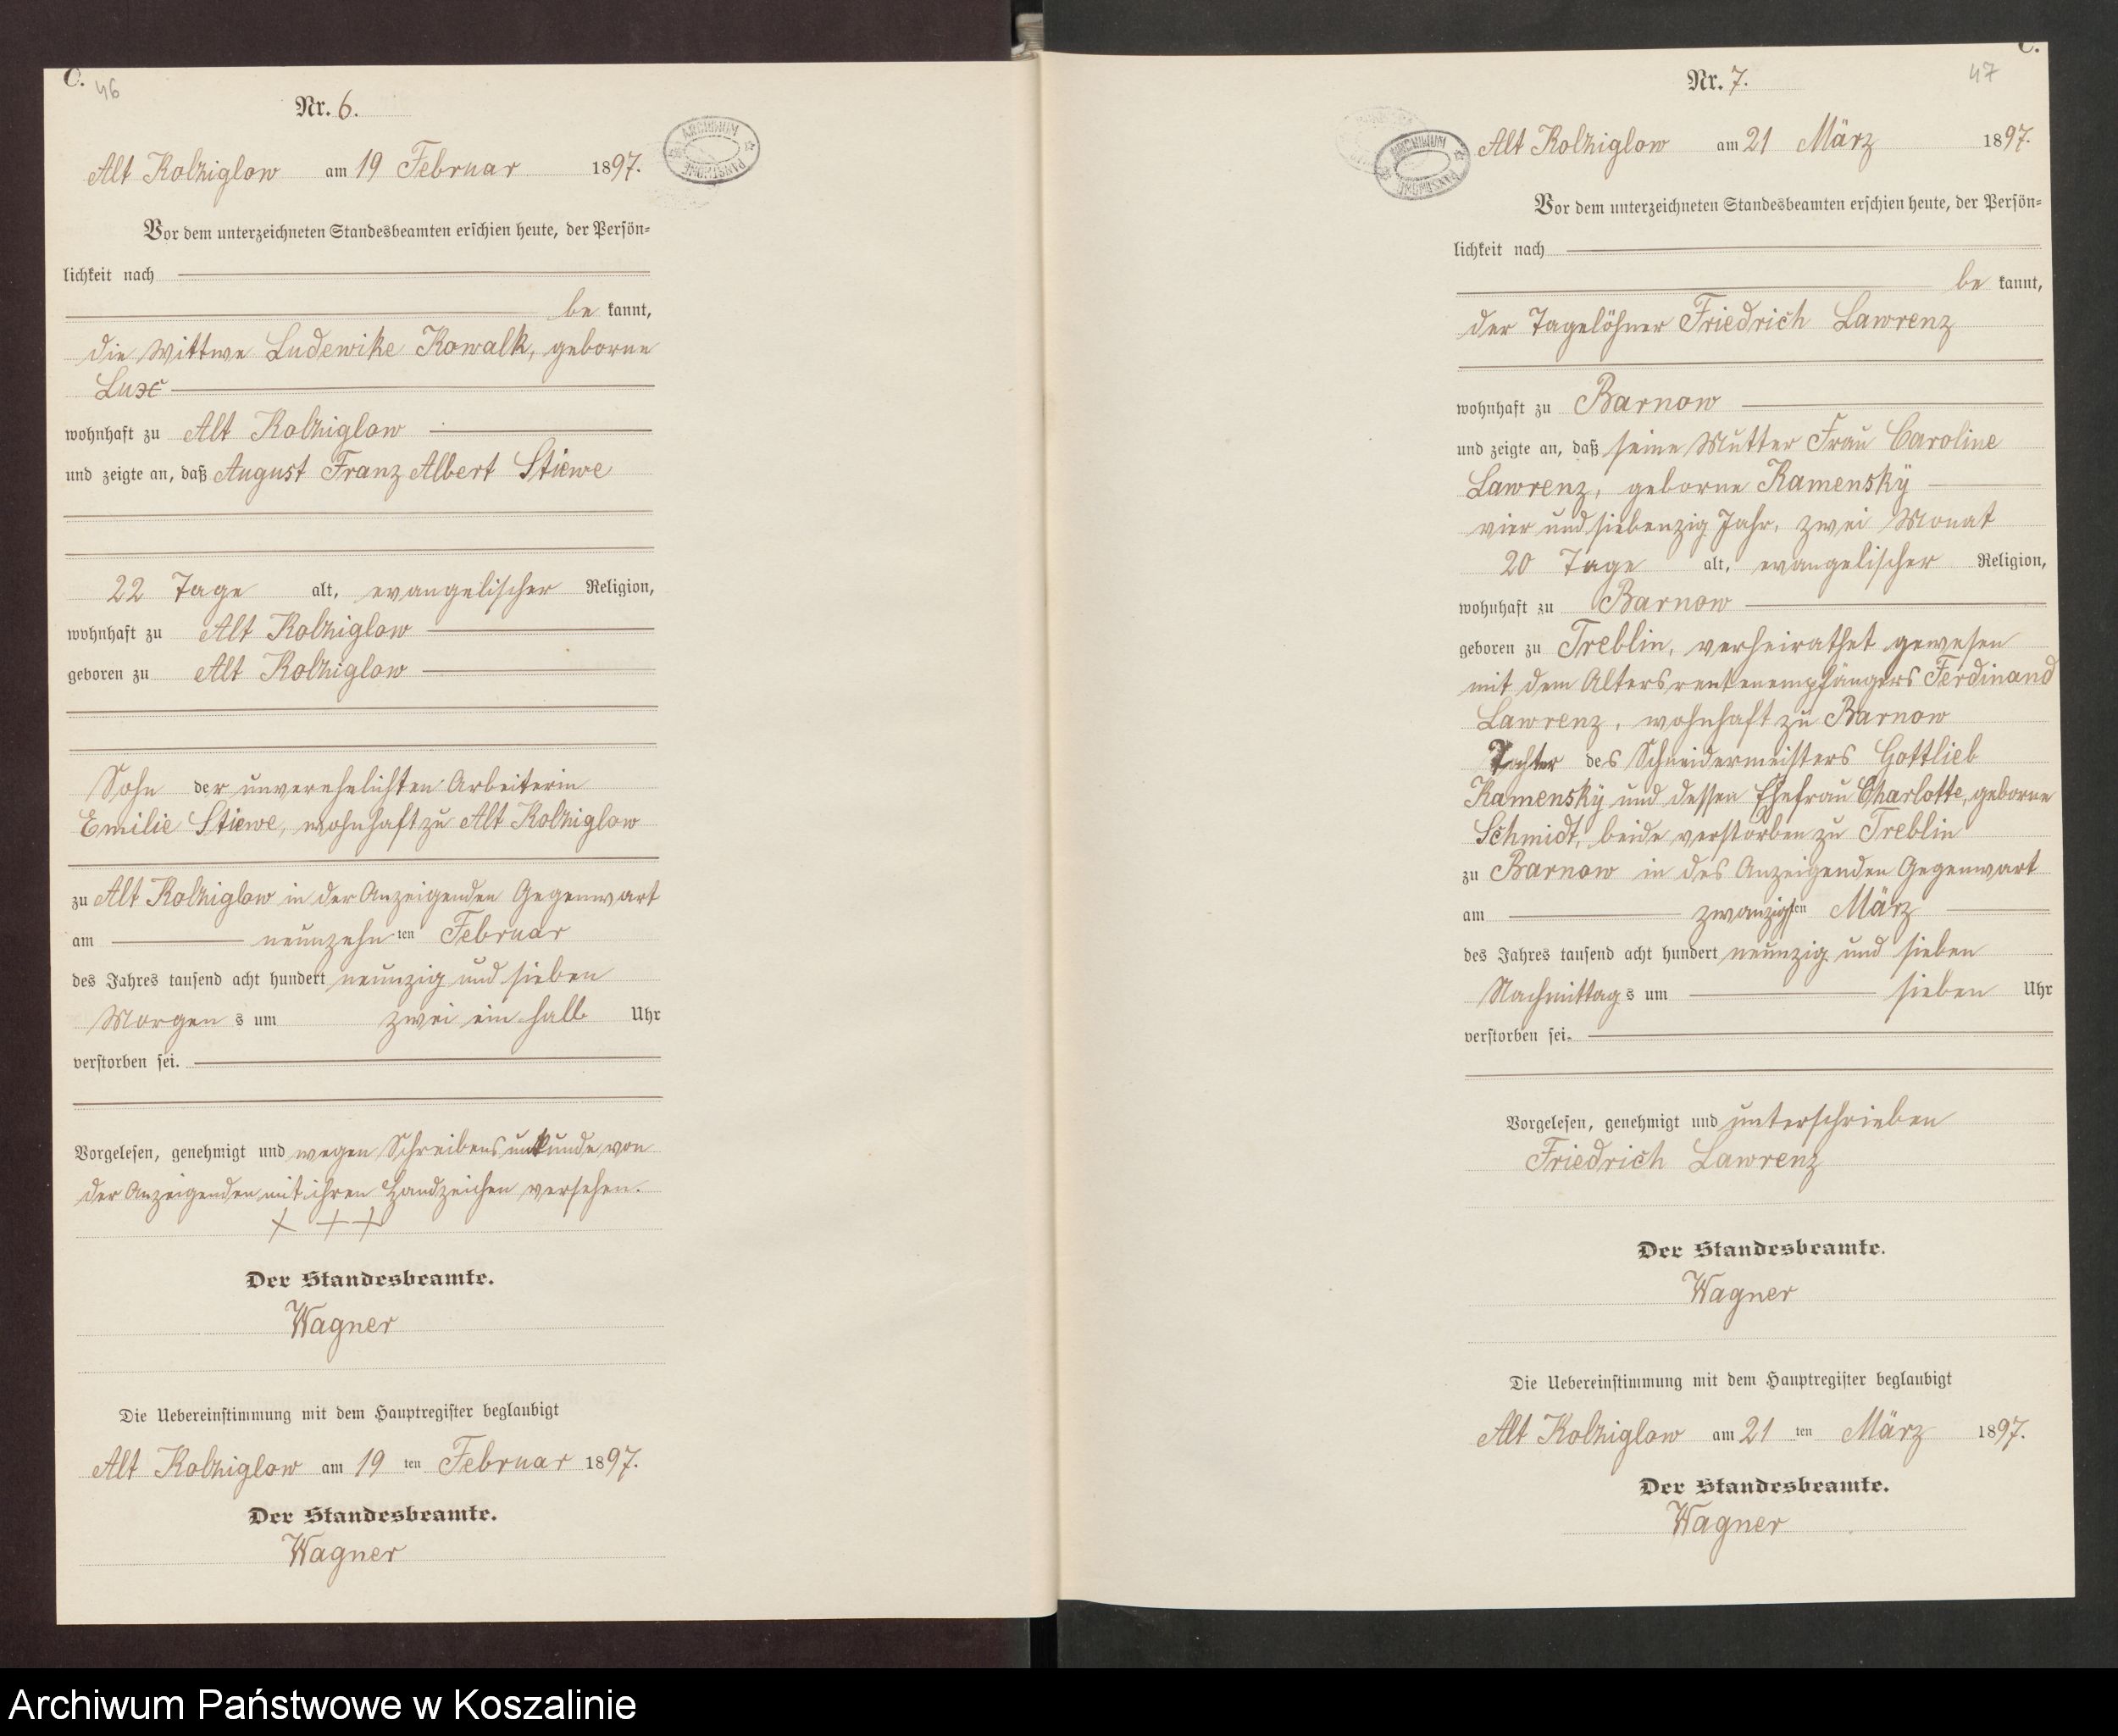 C.
46
Nr. 6.
ARCHIWUM PAŃSTWOWE
Alt Kolziglow am 19 Februar 1897.
Vor dem unterzeichneten Standesbeamten erschien heute, der Persön-
lichkeit nach
be kannt,
die Wittwe Ludewike Kowalk, geborne
Lux
wohnhaft zu Alt Kolziglow
und zeigte an, daß August Franz Albert Stiewe
22 Tage alt, evangelischer Religion,
wohnhaft zu Alt Kolziglow
geboren zu Alt Kolziglow
Sohn der unverehelichten Arbeiterin
Emilie Stiewe, wohnhaft zu Alt Kolziglow
zu Alt Kolziglow in der Anzeigenden Gegenwart
am neunzehn ten Februar
des Jahres tausend acht hundert neunzig und sieben
Morgen s um zwei ein halb Uhr
verstorben sei.
Vorgelesen, genehmigt und wegen Schreibensunkunde von
der Anzeigenden mit ihren Handzeichen versehen.
+ + +
Der Standesbeamte.
Wagner
Die Uebereinstimmung mit dem Hauptregister beglaubigt
Alt Kolziglow am 19 ten Februar 1897.
Der Standesbeamte.
Wagner
C.
47
Nr. 7.
ARCHIWUM PAŃSTWOWE
Alt Kolziglow am 21 März 1897.
Vor dem unterzeichneten Standesbeamten erschien heute, der Persön-
lichkeit nach
be kannt,
der Tagelöhner Friedrich Lawrenz
wohnhaft zu Barnow
und zeigte an, daß seine Mutter Frau Caroline
Lawrenz, geborne Kamensky
vier und siebenzig Jahr, zwei Monat
20 Tage alt, evangelischer Religion,
wohnhaft zu Barnow
geboren zu Treblin, verheirathet gewesen
mit dem Altersrentenempfängers Ferdinand
Lawrenz, wohnhaft zu Barnow
Tochter des Schneidermeisters Gottlieb
Kamensky und dessen Ehefrau Charlotte, geborne
Schmidt, beide verstorben zu Treblin
zu Barnow in des Anzeigenden Gegenwart
am zwanzigsten März
des Jahres tausend acht hundert neunzig und sieben
Nachmittag s um sieben Uhr
verstorben sei.
Vorgelesen, genehmigt und unterschrieben
Friedrich Lawrenz
Der Standesbeamte.
Wagner
Die Uebereinstimmung mit dem Hauptregister beglaubigt
Alt Kolziglow am 21 ten März 1897.
Der Standesbeamte.
Wagner
Archiwum Państwowe w Koszalinie